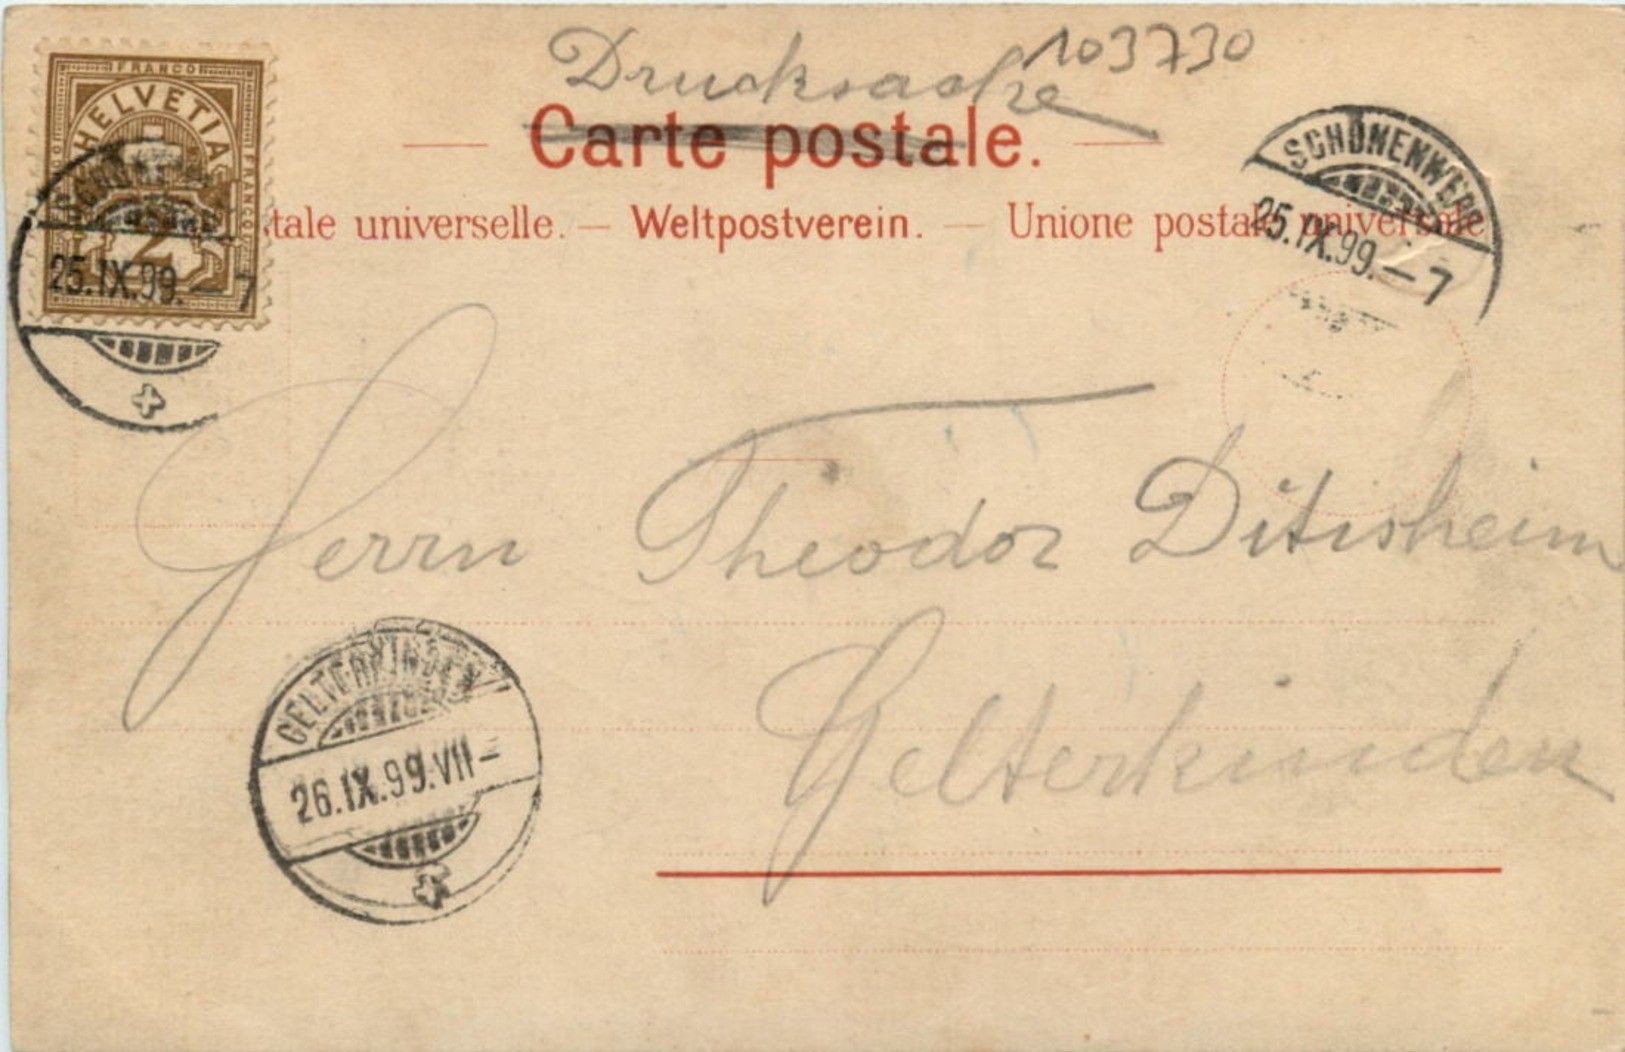 Drucksache 103730
Carte postale.
tale universelle. — Weltpostverein. — Unione postale universale
FRANCO
HELVETIA
FRANCO
2
25.IX.99.–7
SCHÖNENWERD
25.IX.99.–7
Herrn Theodor Ditisheim
Gelterkinden
GELTERKINDEN
26.IX.99.VII–